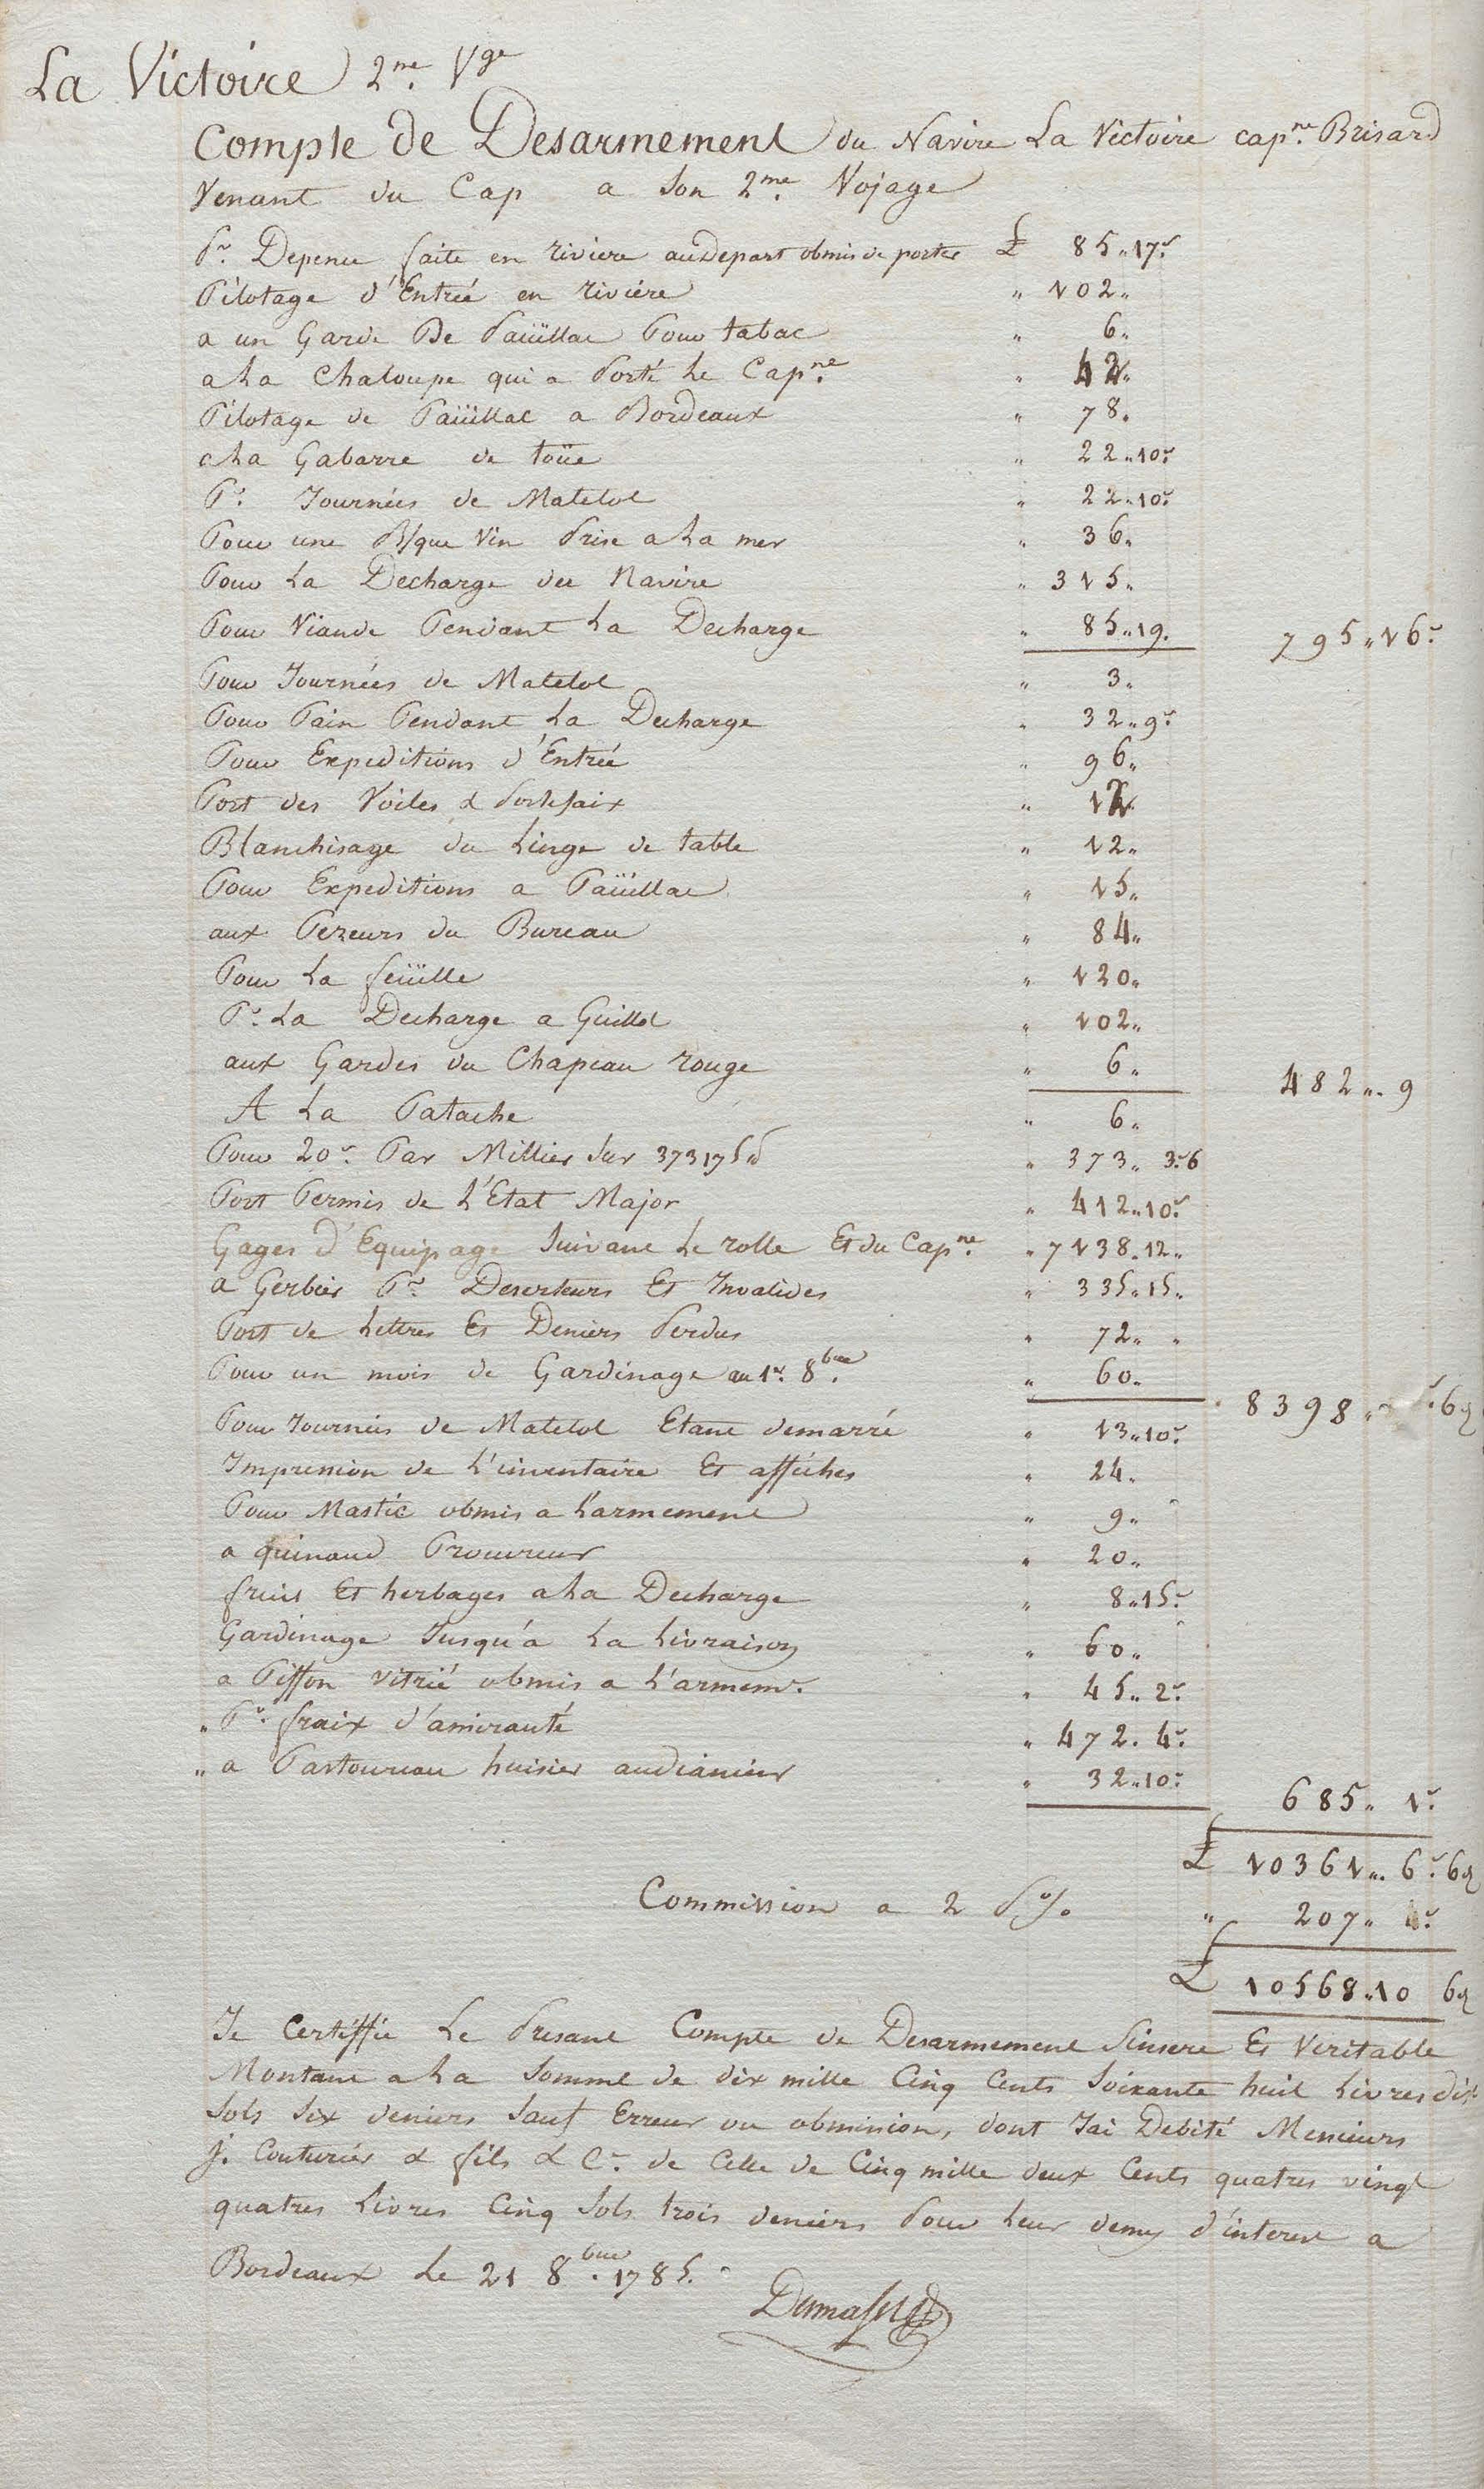 La Victoire 2me. Vge
Compte de Desarmement du Navire La Victoire capne. Brisard
Venant du Cap a Son 2me. Voyage
Pr. Depence faite en riviere audepart obmis de porter £ 85.. 17s.
Pilotage d'Entrée en riviére " 102..
a un Garde De Paüillac Pour tabac " 6..
a La Chaloupe qui a Porté Le Capne. " 42..
Pilotage de Paüillac a Bordeaux " 78..
a La Gabarre de toüe " 22.. 10s.
Pr. Journées de Matelot " 22.. 10s.
Pour une B/que Vin Prise a La mer " 36..
Pour La Decharge du Navire " 315..
Pour Viande Pendant La Decharge " 85.. 19. 795.. 16s.
Pour Journées de Matelot " 3..
Pour Pain Pendant La Decharge " 32.. 9s.
Pour Expeditions d'Entrée " 96..
Port des Voiles & Portefaix " 12..
Blanchisage du Linge de table " 12..
Pour Expeditions a Paüillac " 15..
aux Pezeurs du Bureau " 84..
Pour La feüille " 120..
Pr. La Decharge a Guillot " 102..
aux Gardes du Chapeau rouge " 6.. 482.. 9
A La Patache " 6..
Pour 20s. Par Millier Sur 373175 " 373.. 3s. 6
Port Permis de L'Etat Major " 412.. 10s.
Gages d'Equipage Suivant Le rolle Et du Capne. " 7138.. 12..
a Gerbier Pr. Deserteurs Et Invalides " 335.. 15..
Port de Lettres Et Deniers Perdus " 72.. "
Pour un mois de Gardinage au 1er. 8bre. " 60.. 8398.. 6d
Pour Journées de Matelot Etant demarré " 13.. 10s.
Impression de L'inventaire Et affiches " 24..
Pour Mastic obmis a L'armement " 9..
a quinaud Procureur " 20..
fruit Et herbages a La Decharge " 8.. 15s.
Gardinage Jusqu'a La Livraison " 60..
a Piffon vitrié obmis a L'armemt. " 45.. 2s.
" Pr. fraix d'amirauté " 472.. 4s.
" a Partoureau huisier audiancier " 32.. 10s.
685.. 1s.
£ 10361.. 6s. 6d
Commission a 2 P% " 207.. 4s.
£ 10568.. 10 6d
Je Certiffie Le Presant Compte de Desarmement Sinsere Et Veritable
Montant a La Somme de dix mille Cinq Cents Soixante huit Livres dix
Sols Six deniers Sauf Erreur ou obmission, dont J'ai Debité Messieurs
J. Couturier & fils & Ce. de Celle de Cinq mille deux Cents quatres vingt
quatres Livres Cinq Sols trois deniers Pour Leur demy d'interest a
Bordeaux Le 21 8bre. 1785.